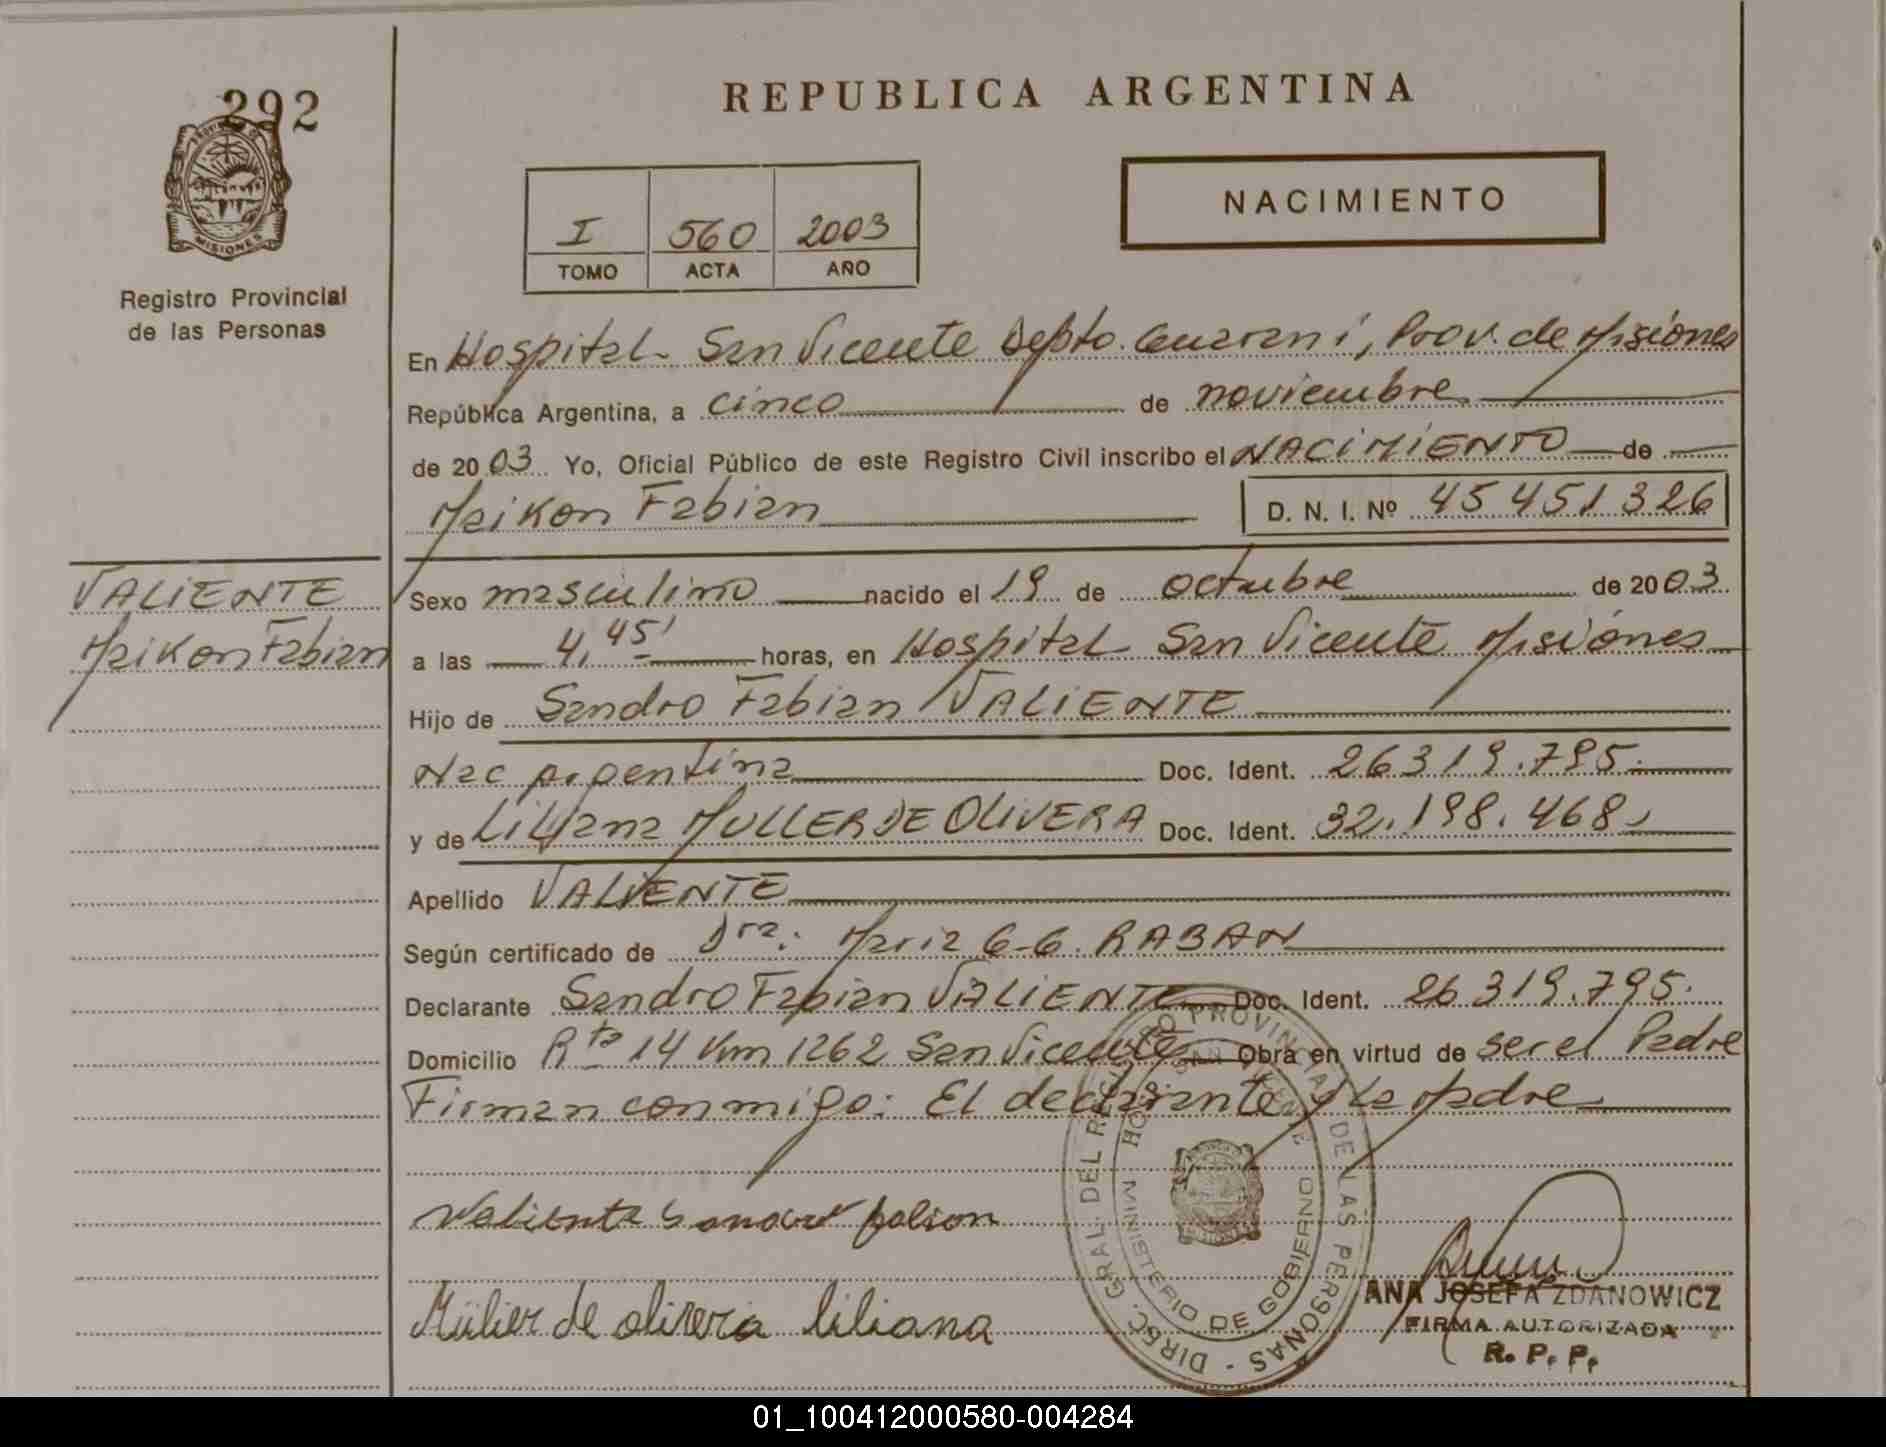 292
REPUBLICA ARGENTINA
PROVINCIA DE
MISIONES
Registro Provincial
de las Personas
NACIMIENTO
I 560 2003
TOMO ACTA AÑO
En Hospital San Vicente Depto. Guarani, Prov. de Misiones
República Argentina, a cinco de noviembre
de 2003 Yo, Oficial Público de este Registro Civil inscribo el NACIMIENTO de
Maikon Fabian D. N. I. Nº 45 451 326
VALIENTE
Maikon Fabian
Sexo masculino nacido el 19 de octubre de 2003
a las 4,45' horas, en Hospital San Vicente Misiones
Hijo de Sandro Fabian VALIENTE
Nac Argentina Doc. Ident. 26 319.795.
y de Liliana MULLER DE OLIVERA Doc. Ident. 32.198.468
Apellido VALIENTE
Según certificado de Dra. Maria G. G. RABAN
Declarante Sandro Fabian VALIENTE Doc. Ident. 26 319.795.
Domicilio Rta 14 Km 1262 San Vicente Obra en virtud de ser el Padre
Firman conmigo: El declarante y la Madre
Valiente Sandro fabian
Müller de olivera liliana
DIREC. GRAL. DEL REGISTRO PROVINCIAL DE LAS PERSONAS
MINISTERIO DE GOBIERNO
MISIONES
ANA JOSEFA ZDANOWICZ
FIRMA AUTORIZADA
R. P. P.
01_100412000580-004284